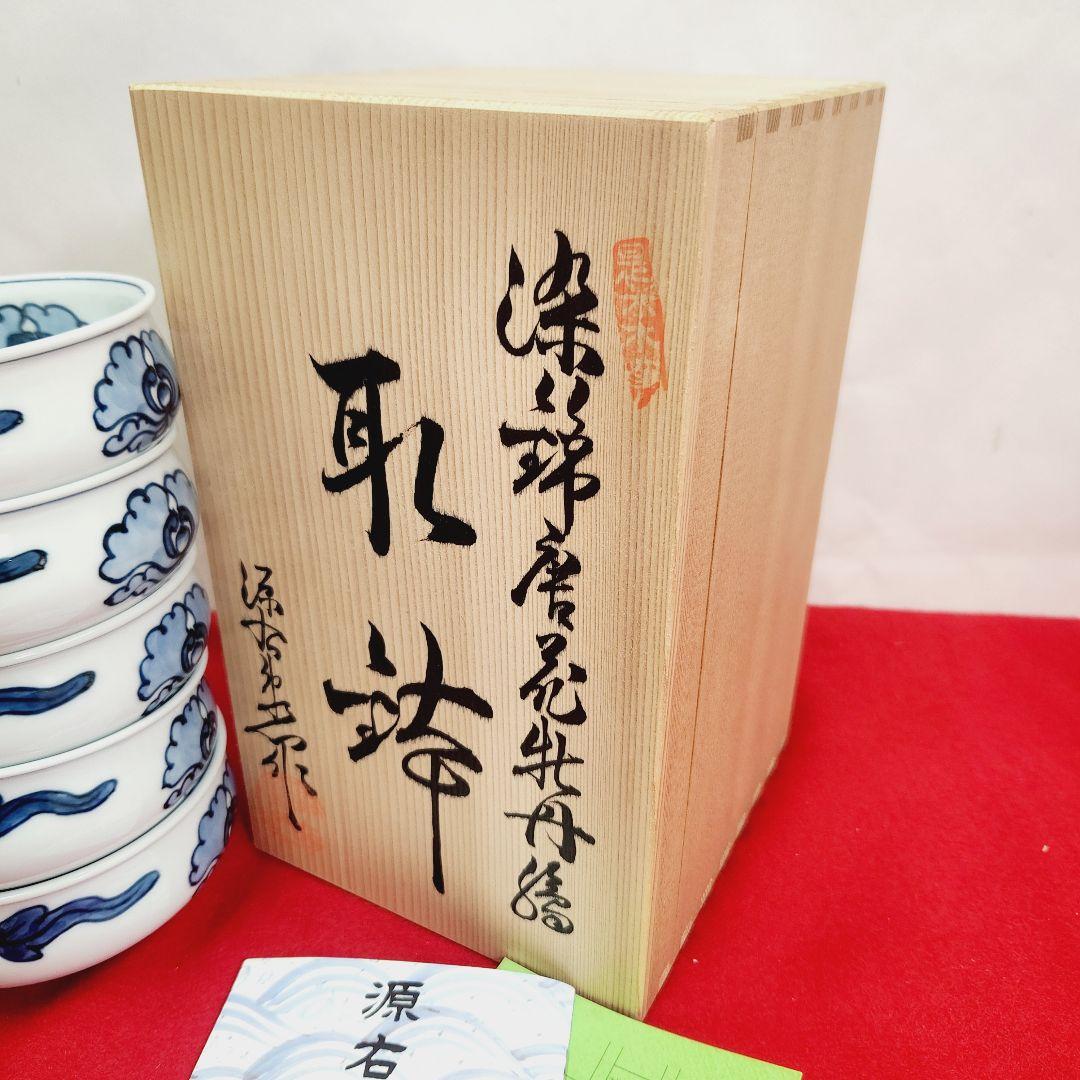 染錦唐花牡丹繪
取鉢
源右衛門作
源右